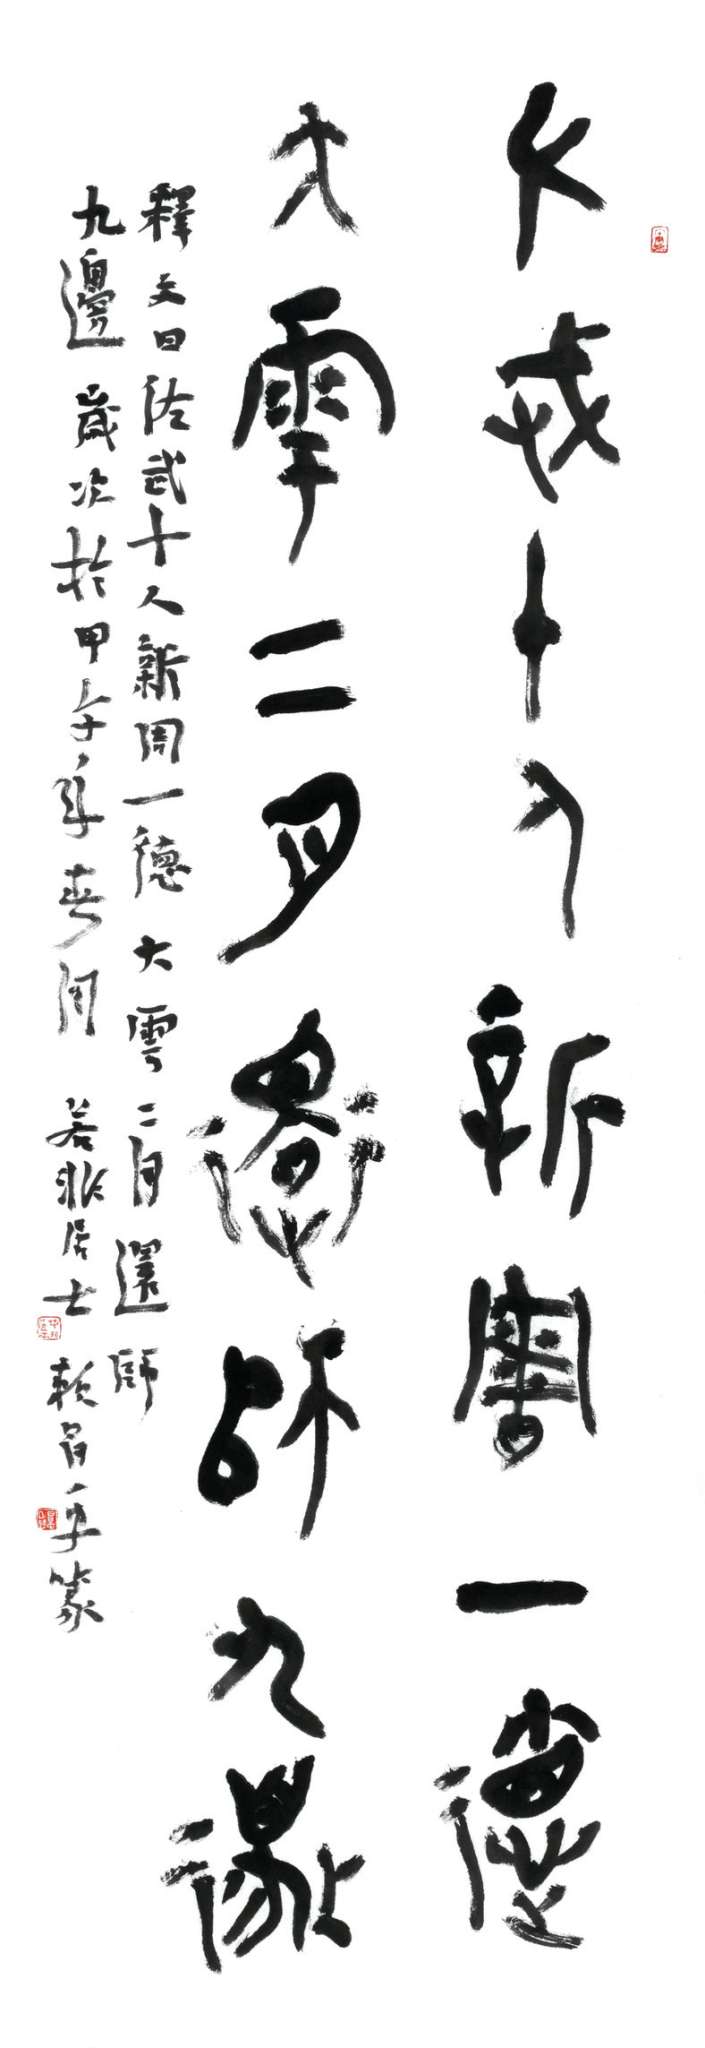 佐武十人新周一德
大雩二月還師九邊
釋文曰佐武十人新周一德大雩二月還師
九邊歲次於甲午年春月若非居士賴平篆